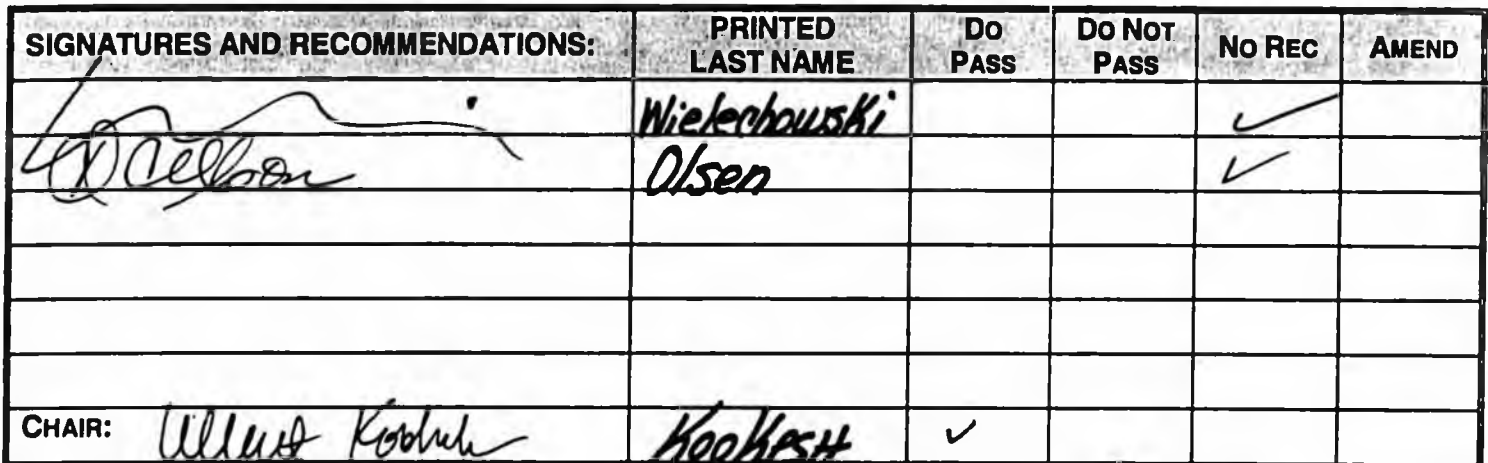 SIGNATURES AND RECOMMENDATIONS: PRINTED LAST NAME DO PASS DO NOT PASS NO REC AMEND
Wielechowski ✓
Olsen ✓
CHAIR: Albert Kookesh KooKesH ✓